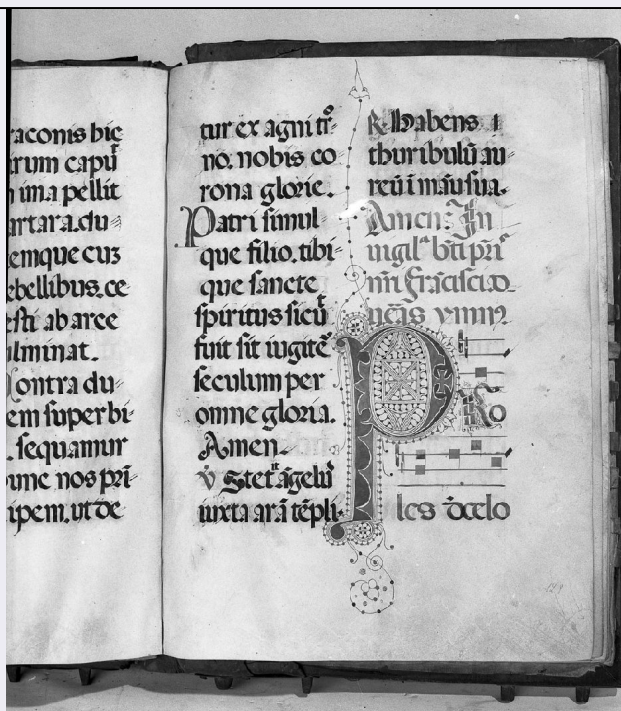 raconis hic
trum capu̅
ima pellit
artara. du-
emque cuz
ebellibus. ce
esti ab arce
ulminat.
Contra du-
em superbi-
sequamur
unc nos pri̅-
ipem. ut de
tur ex agni tr̅o-
no. nobis co
rona glorie.
Patri simul-
que filio. tibi-
que sancte
spiritus sicu̅t
fuit sit iugite̅r
seculum per
omne gloria.
Amen.
v̅ Stetit a̅gelus
iuxta ara̅ te̅pli.
R. Habens
thuribulu̅ au-
reu̅ i̅ manu sua.
Amen: In
uigil̅a b̅ti p̅ri̅s
n̅ri̅ fra̅cisci. ad
P Ro
les de celo